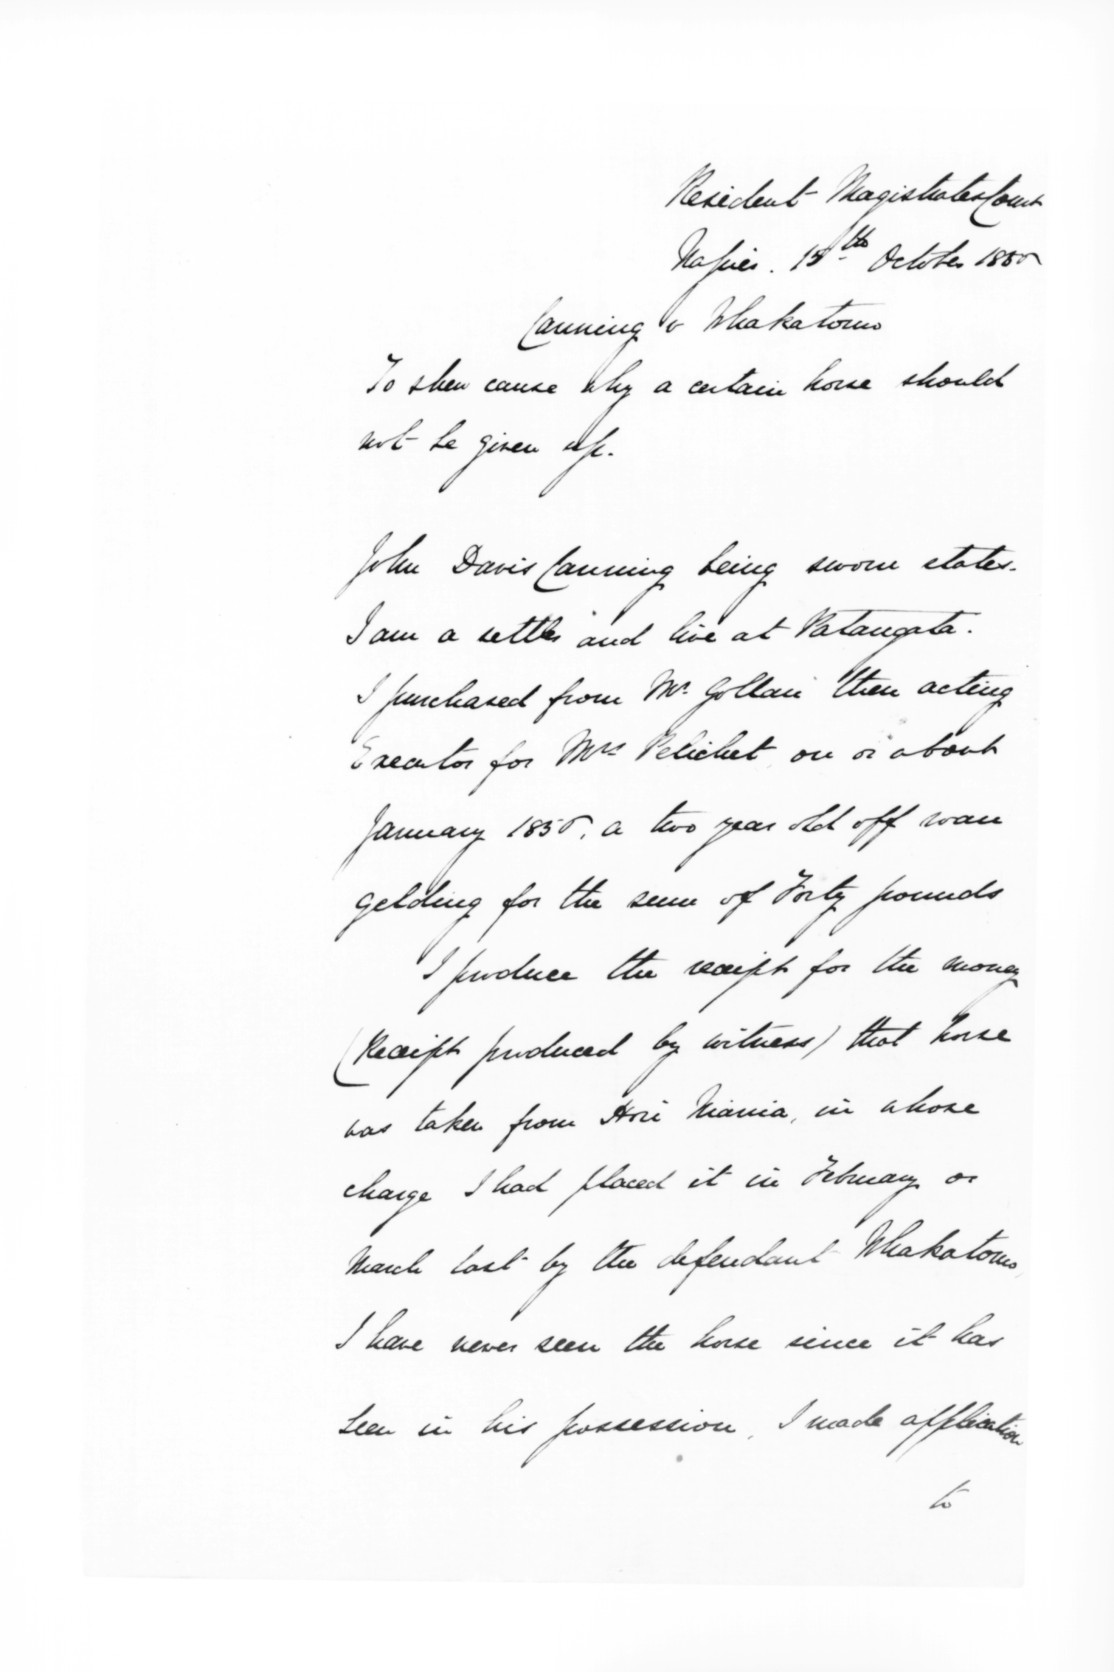 Resident Magistrates Court
Napier. 15th October 185
Canning v Whakatomo
To shew cause why a certain horse should
not be given up.
John Davis Canning being sworn states.
I am a settler and live at Patangata.
I purchased from Mr. Gollan then acting
Executor for Mrs Pelichet, on or about
January 185, a two year old off roan
gelding for the sum of Forty pounds
I produce the receipt for the money
(Receipt produced by witness) that horse
was taken from Hori Niania, in whose
charge I had placed it in February or
March last by the defendant Whakatomo,
I have never seen the horse since it has
been in his possession, I made application
to